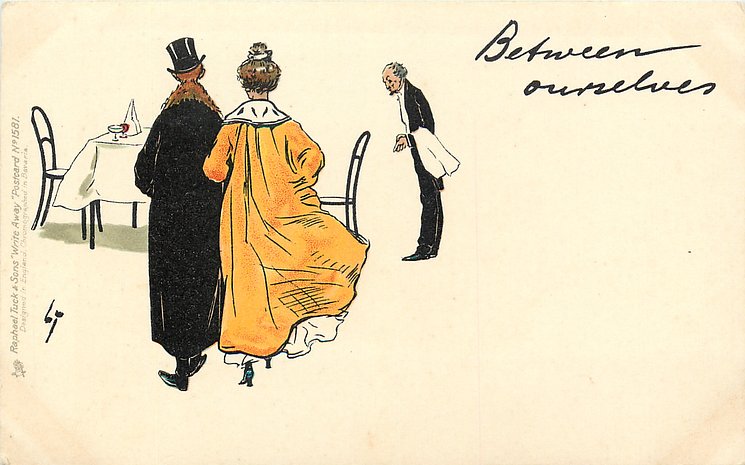 Between
ourselves
Raphael Tuck & Sons "Write Away" Postcard Nº 1581.
Designed in England. Chromographed in Bavaria.